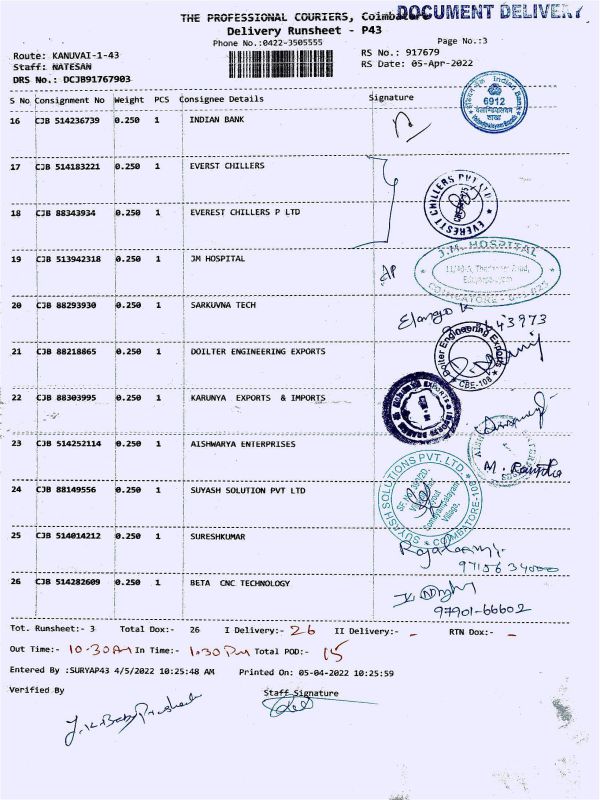 THE PROFESSIONAL COURIERS, Coimbatore
DOCUMENT DELIVERY
Delivery Runsheet - P43
Phone No.:0422-3505555
Page No.:3
Route: KANUVAI-1-43
RS No.: 917679
Staff: NATESAN
RS Date: 05-Apr-2022
DRS No.: DCJB91767903
S No Consignment No Weight PCS Consignee Details Signature
16 CJB 514236739 0.250 1 INDIAN BANK
Indian Bank
6912
शाखा
17 CJB 514183221 0.250 1 EVERST CHILLERS
EVEREST CHILLERS PVT LTD
18 CJB 88343934 0.250 1 EVEREST CHILLERS P LTD
19 CJB 513942318 0.250 1 JM HOSPITAL
AP
J.M. HOSPITAL
COIMBATORE - 641 025
20 CJB 88293930 0.250 1 SARKUVNA TECH
Elango K
43973
21 CJB 88218865 0.250 1 DOILTER ENGINEERING EXPORTS
Doilter Engineering Exports
CBE-108
22 CJB 88303995 0.250 1 KARUNYA EXPORTS & IMPORTS
23 CJB 514252114 0.250 1 AISHWARYA ENTERPRISES
M.
24 CJB 88149556 0.250 1 SUYASH SOLUTION PVT LTD
SUYASH SOLUTIONS PVT. LTD.
Village,
COIMBATORE-108
25 CJB 514014212 0.250 1 SURESHKUMAR
97156 34000
26 CJB 514282609 0.250 1 BETA CNC TECHNOLOGY
97901-66602
Tot. Runsheet:- 3 Total Dox:- 26 I Delivery:- 26 II Delivery:- - RTN Dox:- -
Out Time:- 10.30Am In Time:- 1.30 Pm Total POD:- 15
Entered By :SURYAP43 4/5/2022 10:25:48 AM Printed On: 05-04-2022 10:25:59
Verified By Staff Signature